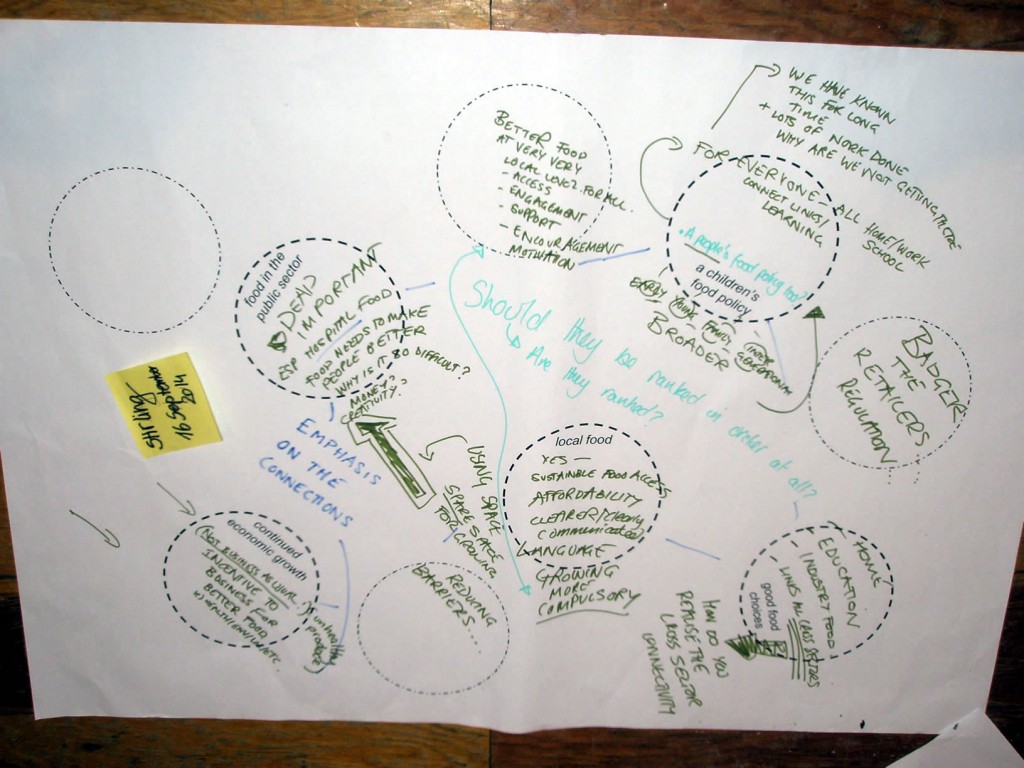 WE HAVE KNOWN
THIS FOR LONG
TIME
+ LOTS OF WORK DONE
WHY ARE WE NOT GETTING THERE
FOR EVERYONE - ALL HOME/WORK
SCHOOL
CONNECT LINKS/
LEARNING
• A people's food policy too?
a children's
food policy
EARLY YEARS FAMILY INTER
GENERATIONAL
BROADER
BETTER FOOD
AT VERY VERY
LOCAL LEVEL FOR ALL.
- ACCESS
- ENGAGEMENT
- SUPPORT
- ENCOURAGEMENT
MOTIVATION
food in the
public sector
DEAD
IMPORTANT
ESP HOSPITAL FOOD
FOOD NEEDS TO MAKE
PEOPLE BETTER
WHY IS IT SO DIFFICULT?
MONEY?
CREATIVITY?
Should they be ranked in order at all?
Are they ranked?
BADGER
THE
RETAILERS...
REGULATION...
Stirling
16 September
2014
EMPHASIS
ON THE
CONNECTIONS
USING SPACE
SPARE SPACE
FOR GROWING
local food
YES -
SUSTAINABLE FOOD ACCESS
AFFORDABILITY
CLEARER/
communicated
LANGUAGE
GROWING
MORE
COMPULSORY
continued
economic growth
(NOT BUSINESS AS USUAL
INCENTIVE TO
BUSINESS FOR
BETTER FOOD
(unhealthy
produce)
REDUCING
BARRIERS...
HOME
EDUCATION
- INDUSTRY FOOD
- LINKS ACROSS SECTORS
good food
choices
HOW DO YOU
THE
CROSS SECTOR
CONNECTIVITY